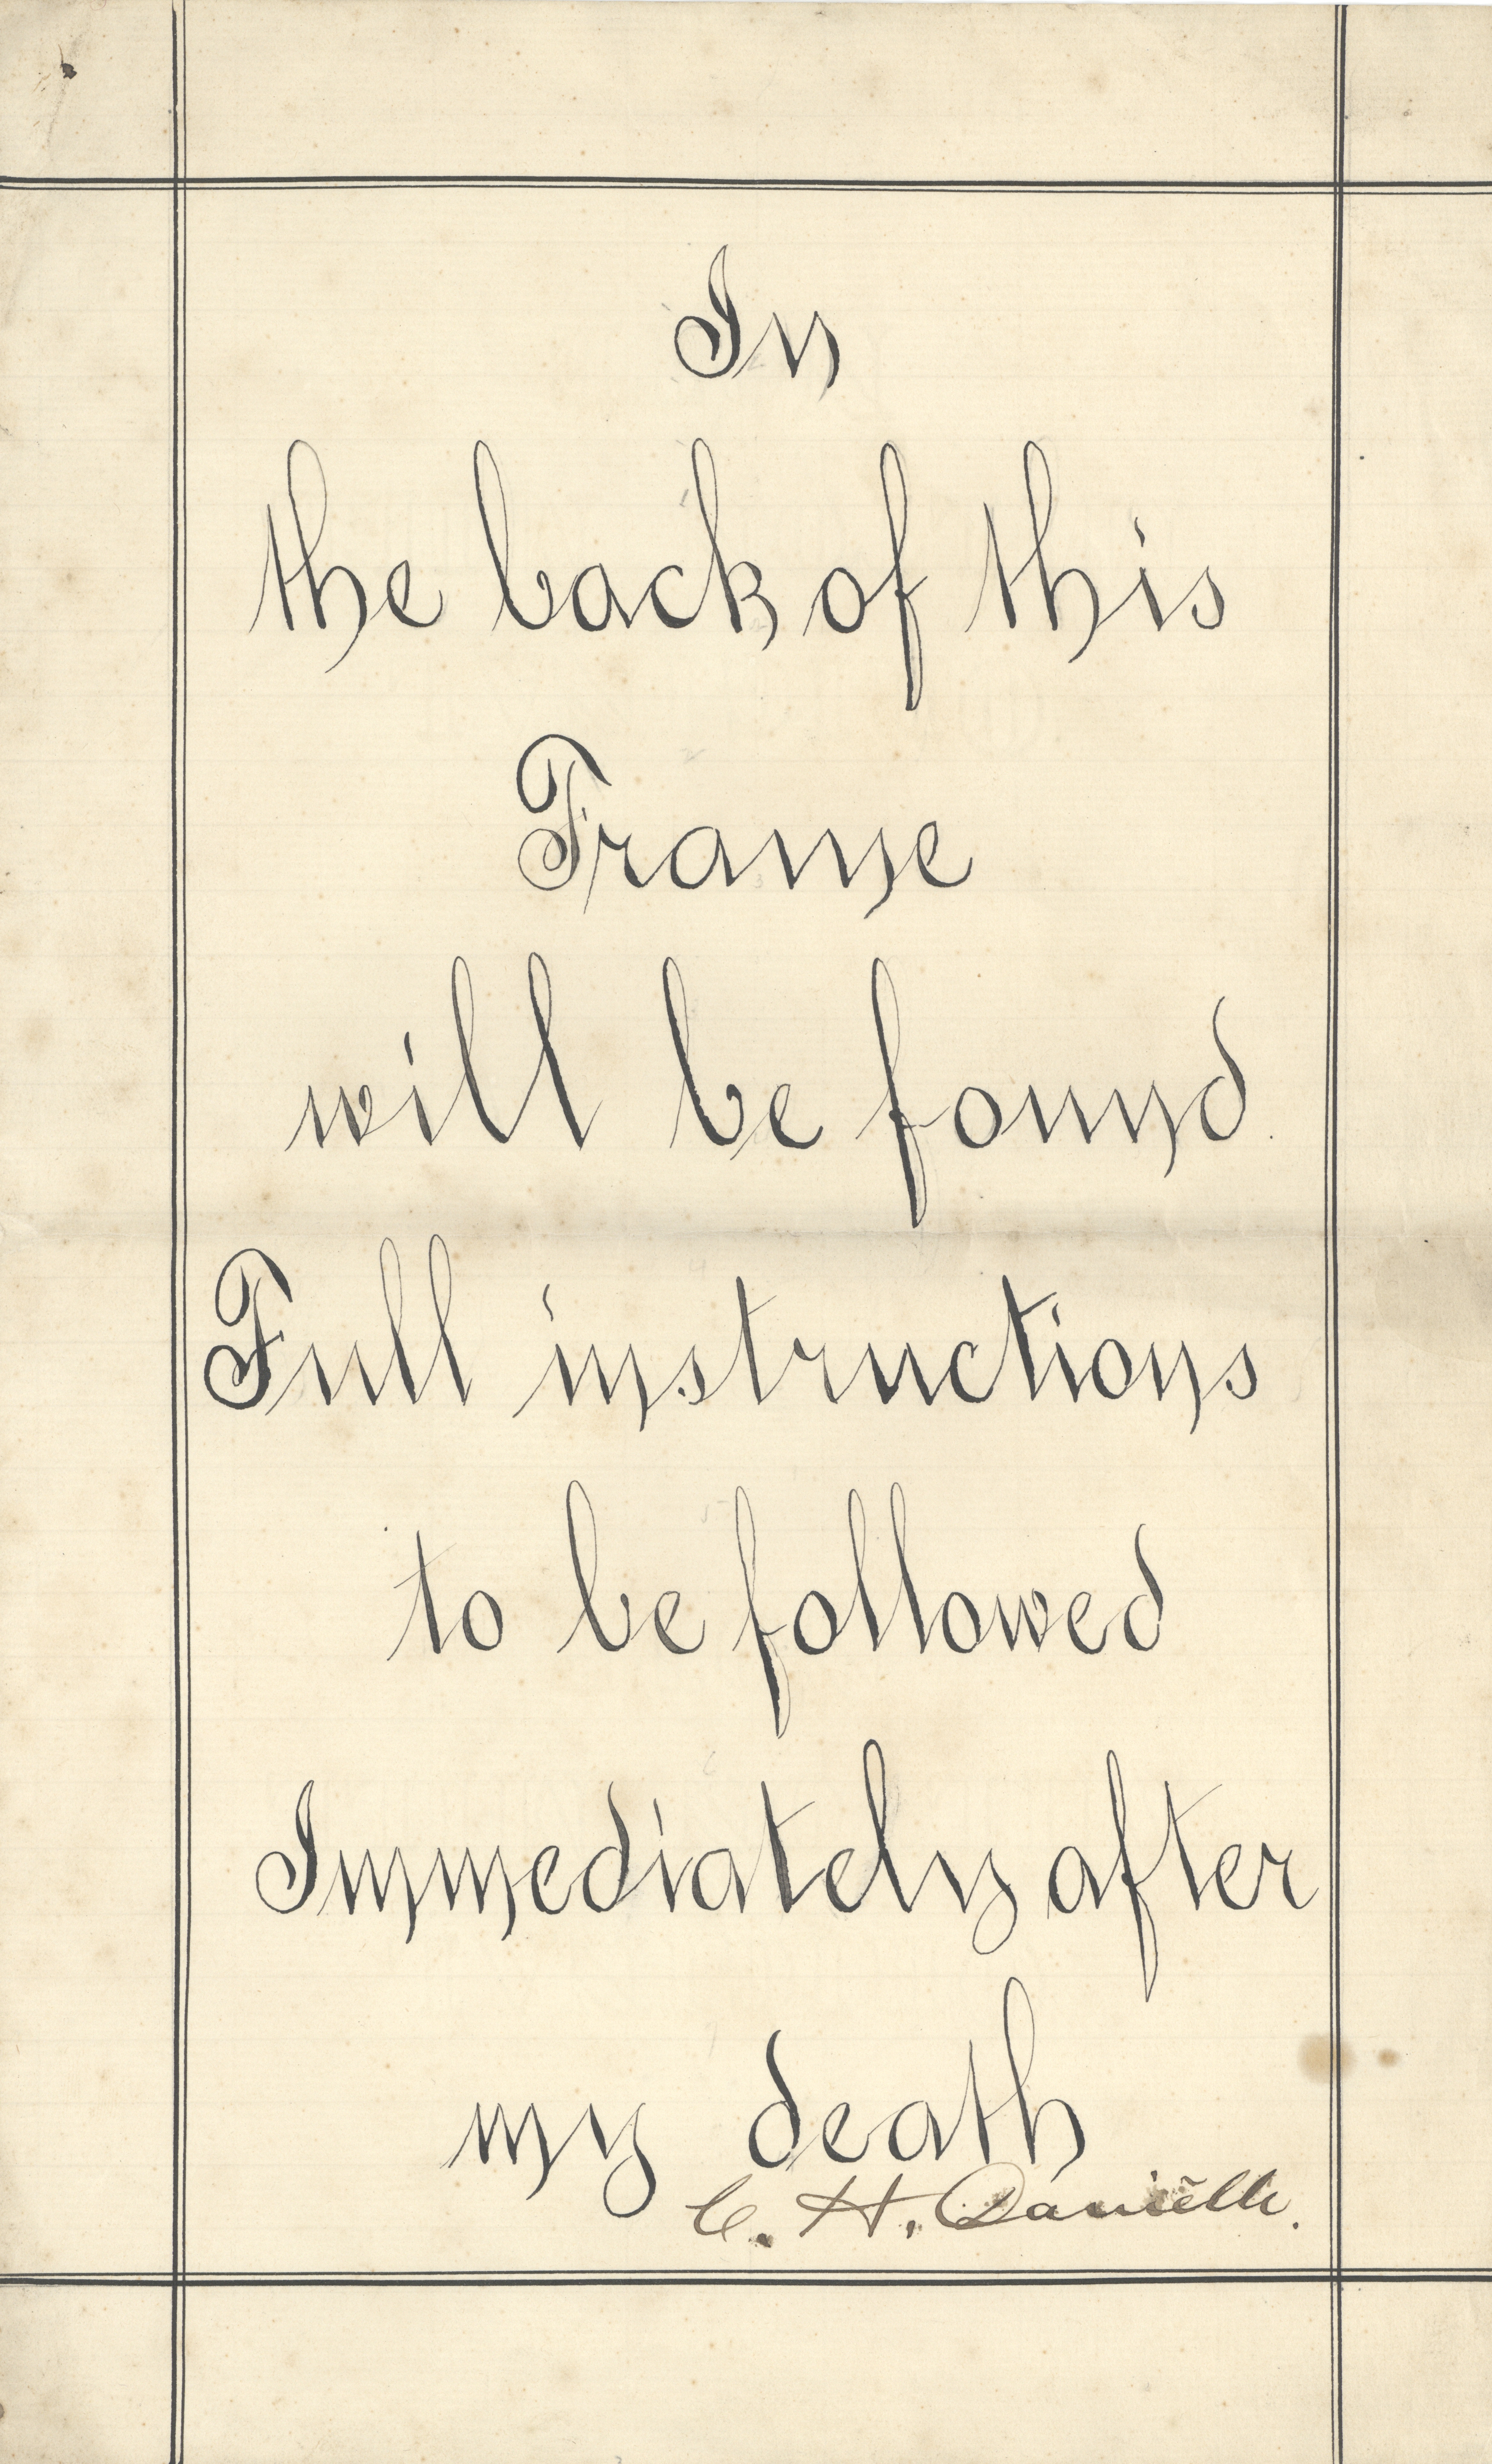 In
the back of this
Frame
will be found
Full instructions
to be followed
Immediately after
my death
C. H. Danielle.